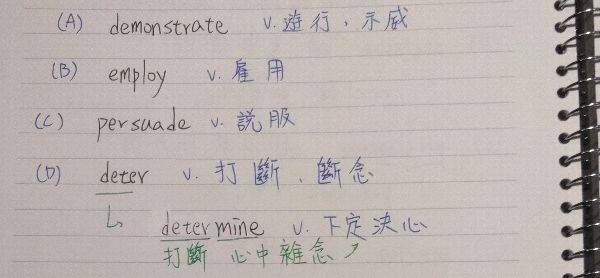 (A) demonstrate v. 遊行、示威
(B) employ v. 雇用
(C) persuade v. 說服
(D) deter v. 打斷、斷念
determine v. 下定決心
打斷 心中雜念